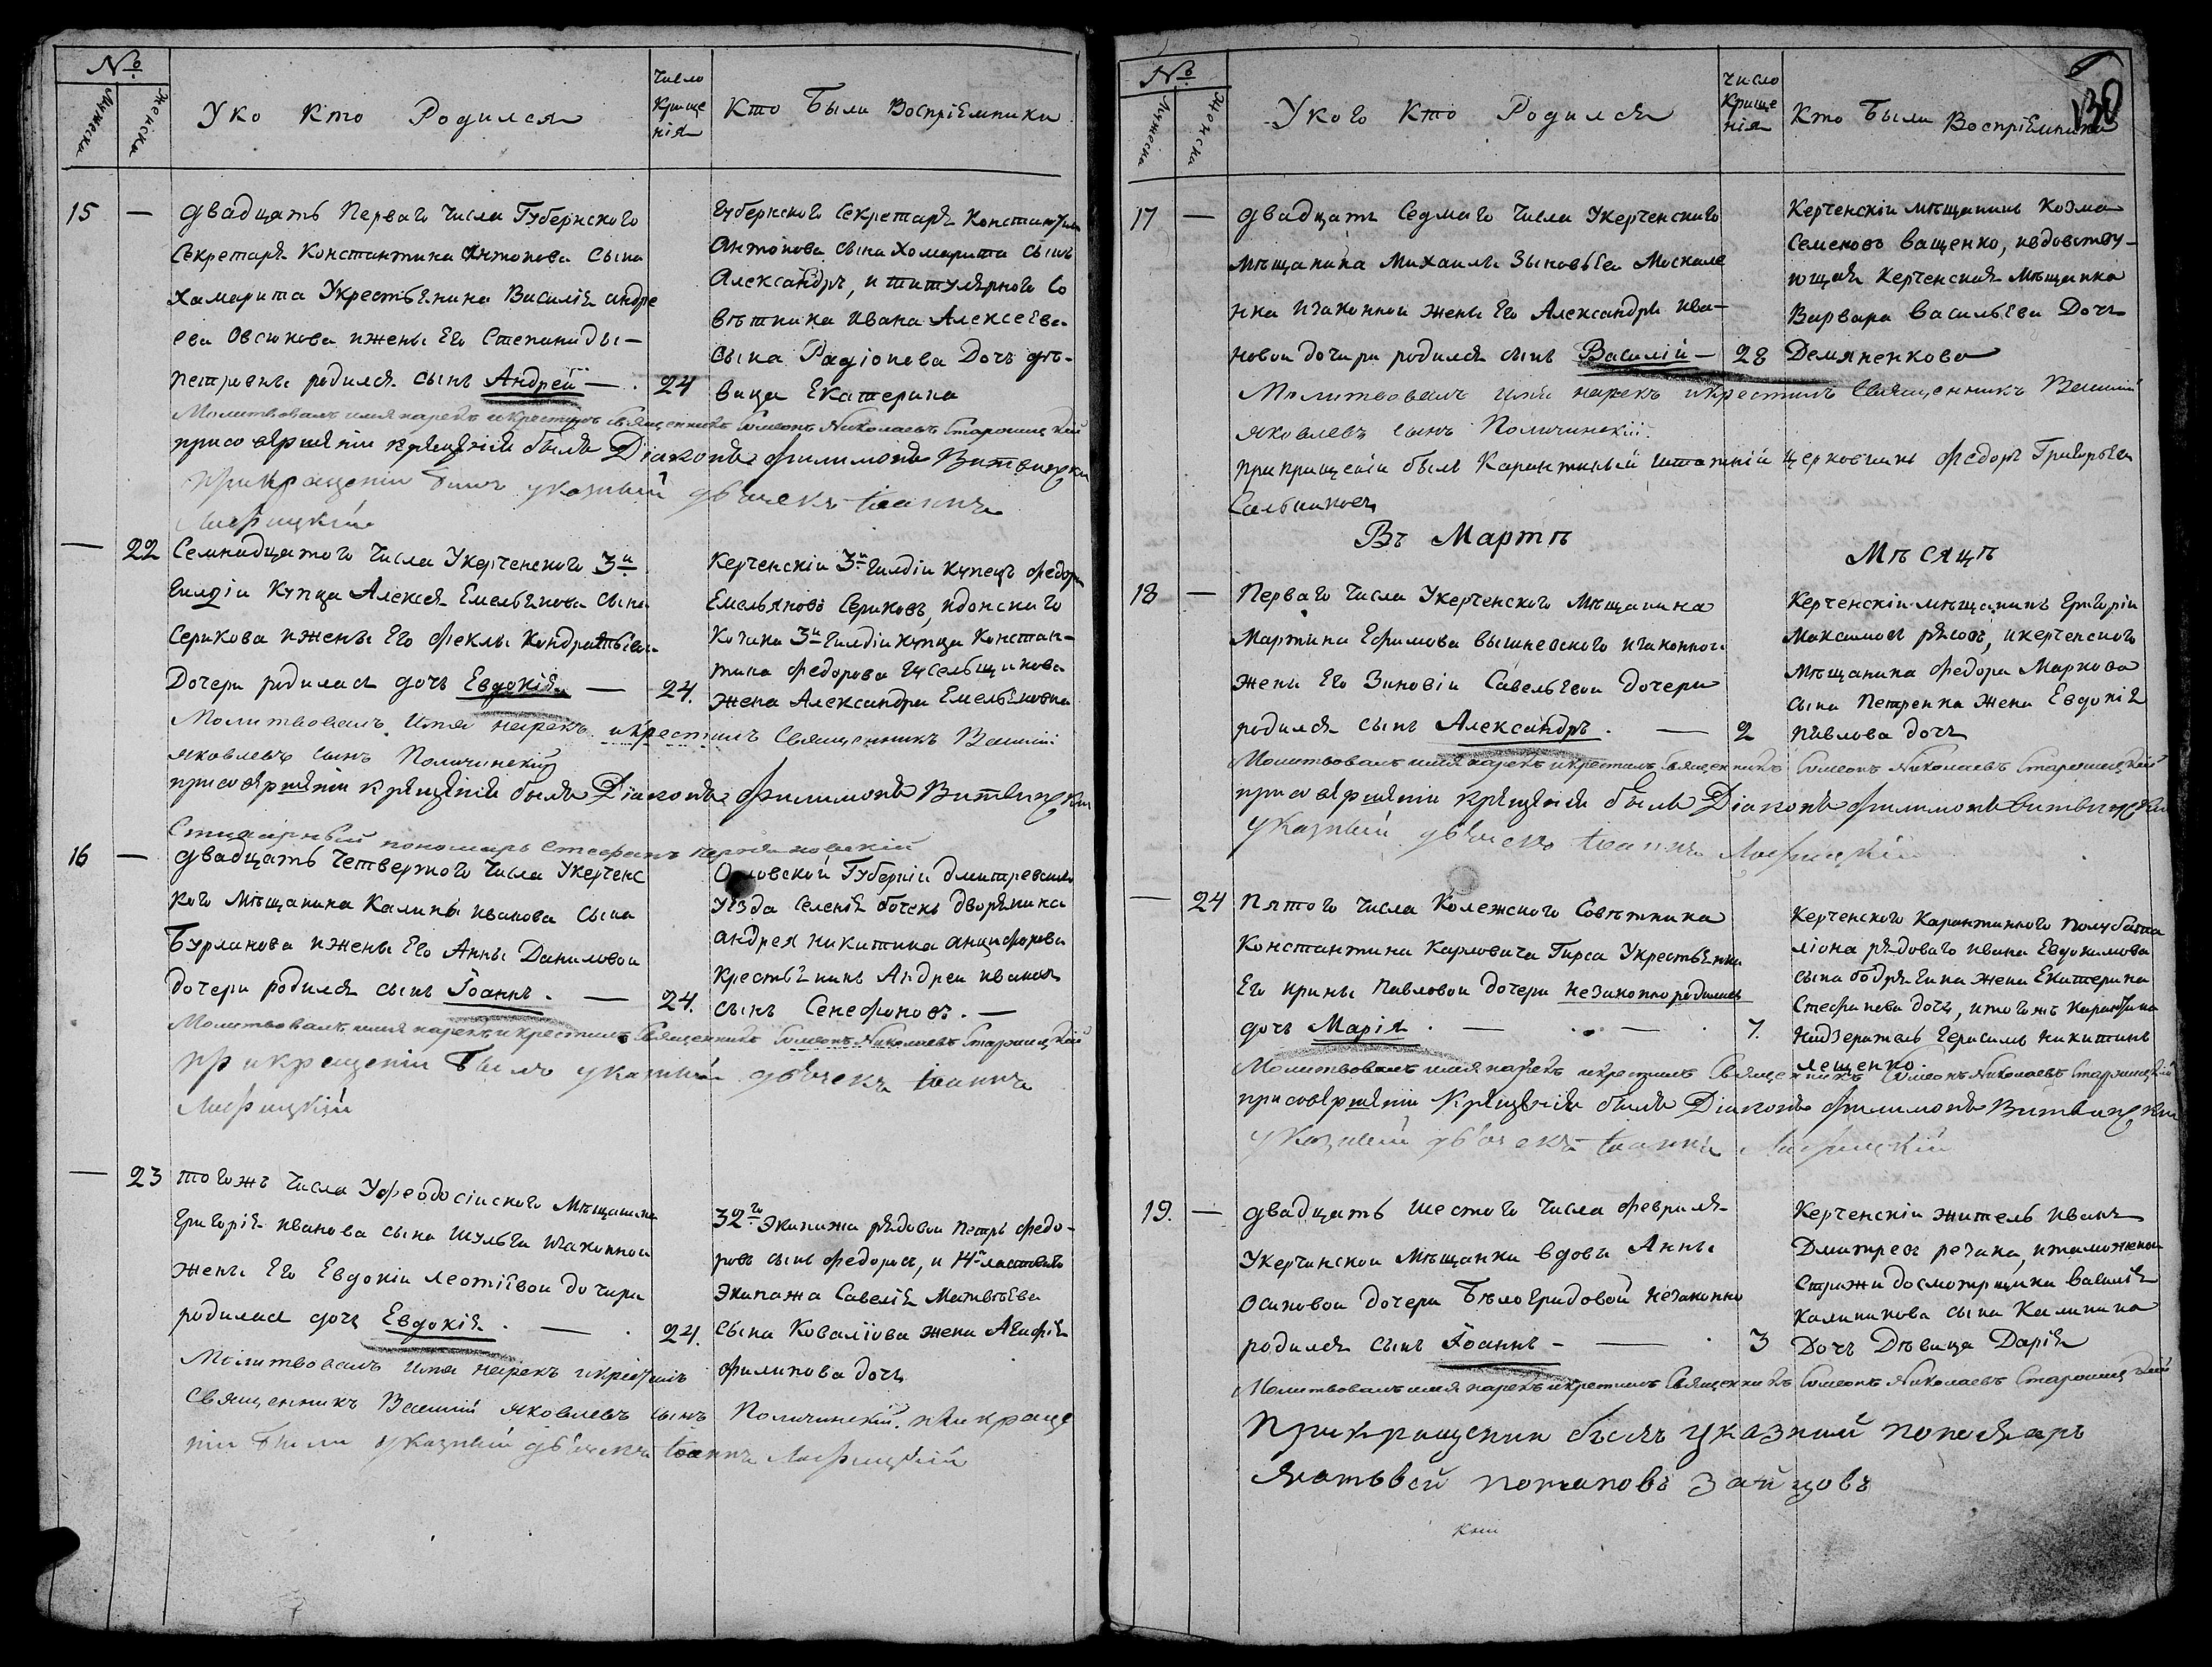 №
Мужеска
Женска
Уко Кто Родился
Число
Креще
нія
Кто Были Воспріемники
15 — двадцать Перваго Числа Губернского
Секретаря Константина Антонова Сына
Хамарита Укрестьянина Василія андре
ева Овсюкова ижены Его Степаниды —
петровны родился сынъ Андрей — 24
Губернского Секретаря Константина
Антонова сына Хомарита сынъ
Александръ, и титулярного Со
вѣтника Ивана Алексеева
сына Радіонова Дочь дѣ-
вица Екатерина
Молитвовалъ имя нарекъ икрестилъ Священникъ Симеонъ Николаевъ Старошицкій
присовершеніи крещенія былъ Діаконъ филимонъ Витвицкій
Прикращеніи былъ указный дьячекъ Іоаннъ
— 22 Семнадцатого Числа Укерченского 3й
Гилдіи Купца Алексея Емельянова Сына
Серикова ижены Его Феклы Кондратьевы
Дочери родилася дочь Евдокія — 24.
Керченскіи 3й Гилдіи купецъ федоръ
Емельяновъ Сериковъ, идонскаго
Козака 3й Гилдіи купца Констан-
тина Федорова Гусельщикова
жена Александра Емельяновна
Молитвовалъ. Имя нарекъ икрестилъ Священникъ Василій
яковлевъ сынъ Поличинскій
присовершеніи крещенія былъ Діаконъ филимонъ Витвицкій
Стихарный пономарь Стефанъ
16 — двадцать четвертого Числа Укерченс
кого Мѣщанина Калины иванова сына
Бурланова ижены Его Анны Даниловои
дочери родился сынъ Іоаннъ. — 24.
Орловской Губерніи Дмитревского
уѣзда Селенія Дворянина
андрея никитина анциферова
крестьянинъ Андреи ивановъ
сынъ Сенефоновъ. —
Молитвовалъ имя нарекъ икрестилъ Священникъ Симеонъ Николаевъ Старошицкій
при крещеніи былъ указный дьячекъ Іоаннъ
— 23 тогожъ Числа Уфеодосіиского Мѣщанина
Григорія иванова сына шульги изаконной
жены Его Евдокіи леотіевои дочири
родилася дочь Евдокія. — 24.
32го Экипажа рядовои Петръ федо-
ровъ сынъ федоровъ, и Н ластового
Экипажа Савелія Матвѣева
сына Коваліова жена Агафія
филипова дочь
Молитвовалъ имя нарекъ икрестилъ
Священникъ Василій яковлевъ сынъ Поличинскій. прикраще
ніи былъ указный дьячекъ Іоаннъ
130
№
Мужеска
Женска
Укого Кто Родился
Число
Креще
нія
Кто Были Воспріемники
17 — двадцать Седмаго Числа Укерченского
мѣщанина Михаила Зыновьева Москале
нка изаконнои жены Его Александры ива-
новои дочири родился сынъ Василій — 28
Керченскіи мѣщанинъ Козма
Семеновъ ващенко, ивдовству-
ющая Керченская Мѣщанка
Варвара васильева Дочь
Демяненкова
Молитвовалъ имя нарекъ икрестилъ Священникъ Василій
яковлевъ сынъ Поличинскій.
прикрищеніи былъ Карантиный штатній церковникъ федоръ Григорьевъ
Въ Мартѣ Мѣсяцѣ
18 — Перваго числа Укерченского Мѣщанина
Мартина Ефимова вышневского изаконнои
жены Его Зиновіи Савельевои Дочери
родился сынъ Александръ. — 2
Керченскіи мѣщанинъ Григоріи
Максимовъ рясовъ, икерченского
мѣщанина федора Маркова
сына Петренка жена Евдокія
павлова дочь
Молитвовалъ имя нарекъ икрестилъ Священникъ Симеонъ Николаевъ Старошицкій
присовершеніи крещенія былъ Діаконъ филимонъ витвицкій
указный дьячекъ Іоаннъ
— 24 пятого Числа Колежского Совѣтника
Константина Карловича Гирса Укрестьянки
Его ирины Павловои дочери незаконно родилася
дочь Марія. — 7.
Керченского Карантинного Полубата
ліона рядоваго ивана Евдокимова
сына бодрягина жена Екатерина
Стефанова дочь, итогожъ Карантина
надзератель Герасимъ никитинъ
лещенко.
Молитвовалъ имя нарекъ икрестилъ Священникъ Симеонъ Николаевъ Старошицкій
присовершеніи Крещенія былъ Діаконъ филимонъ Витвицкій
указный дьячекъ Іоаннъ
19. — двадцать шестого Числа февраля
Укерчинскои Мѣщанки вдовы Анны
Осиповои дочери Бѣлогридовой незаконно
родился сынъ Іоаннъ — 3
Керченскіи житель иванъ
Дмитревъ речана, итаможенои
Стражи досмотрщика василія
Калиникова сына Калинина
Дочь Дѣвица Дарія
Молитвовалъ имя нарекъ икрестилъ Священникъ Симеонъ Николаевъ Старошицкій
Прикращении былъ указний пономаръ
Матьвей потаповъ зайцовъ